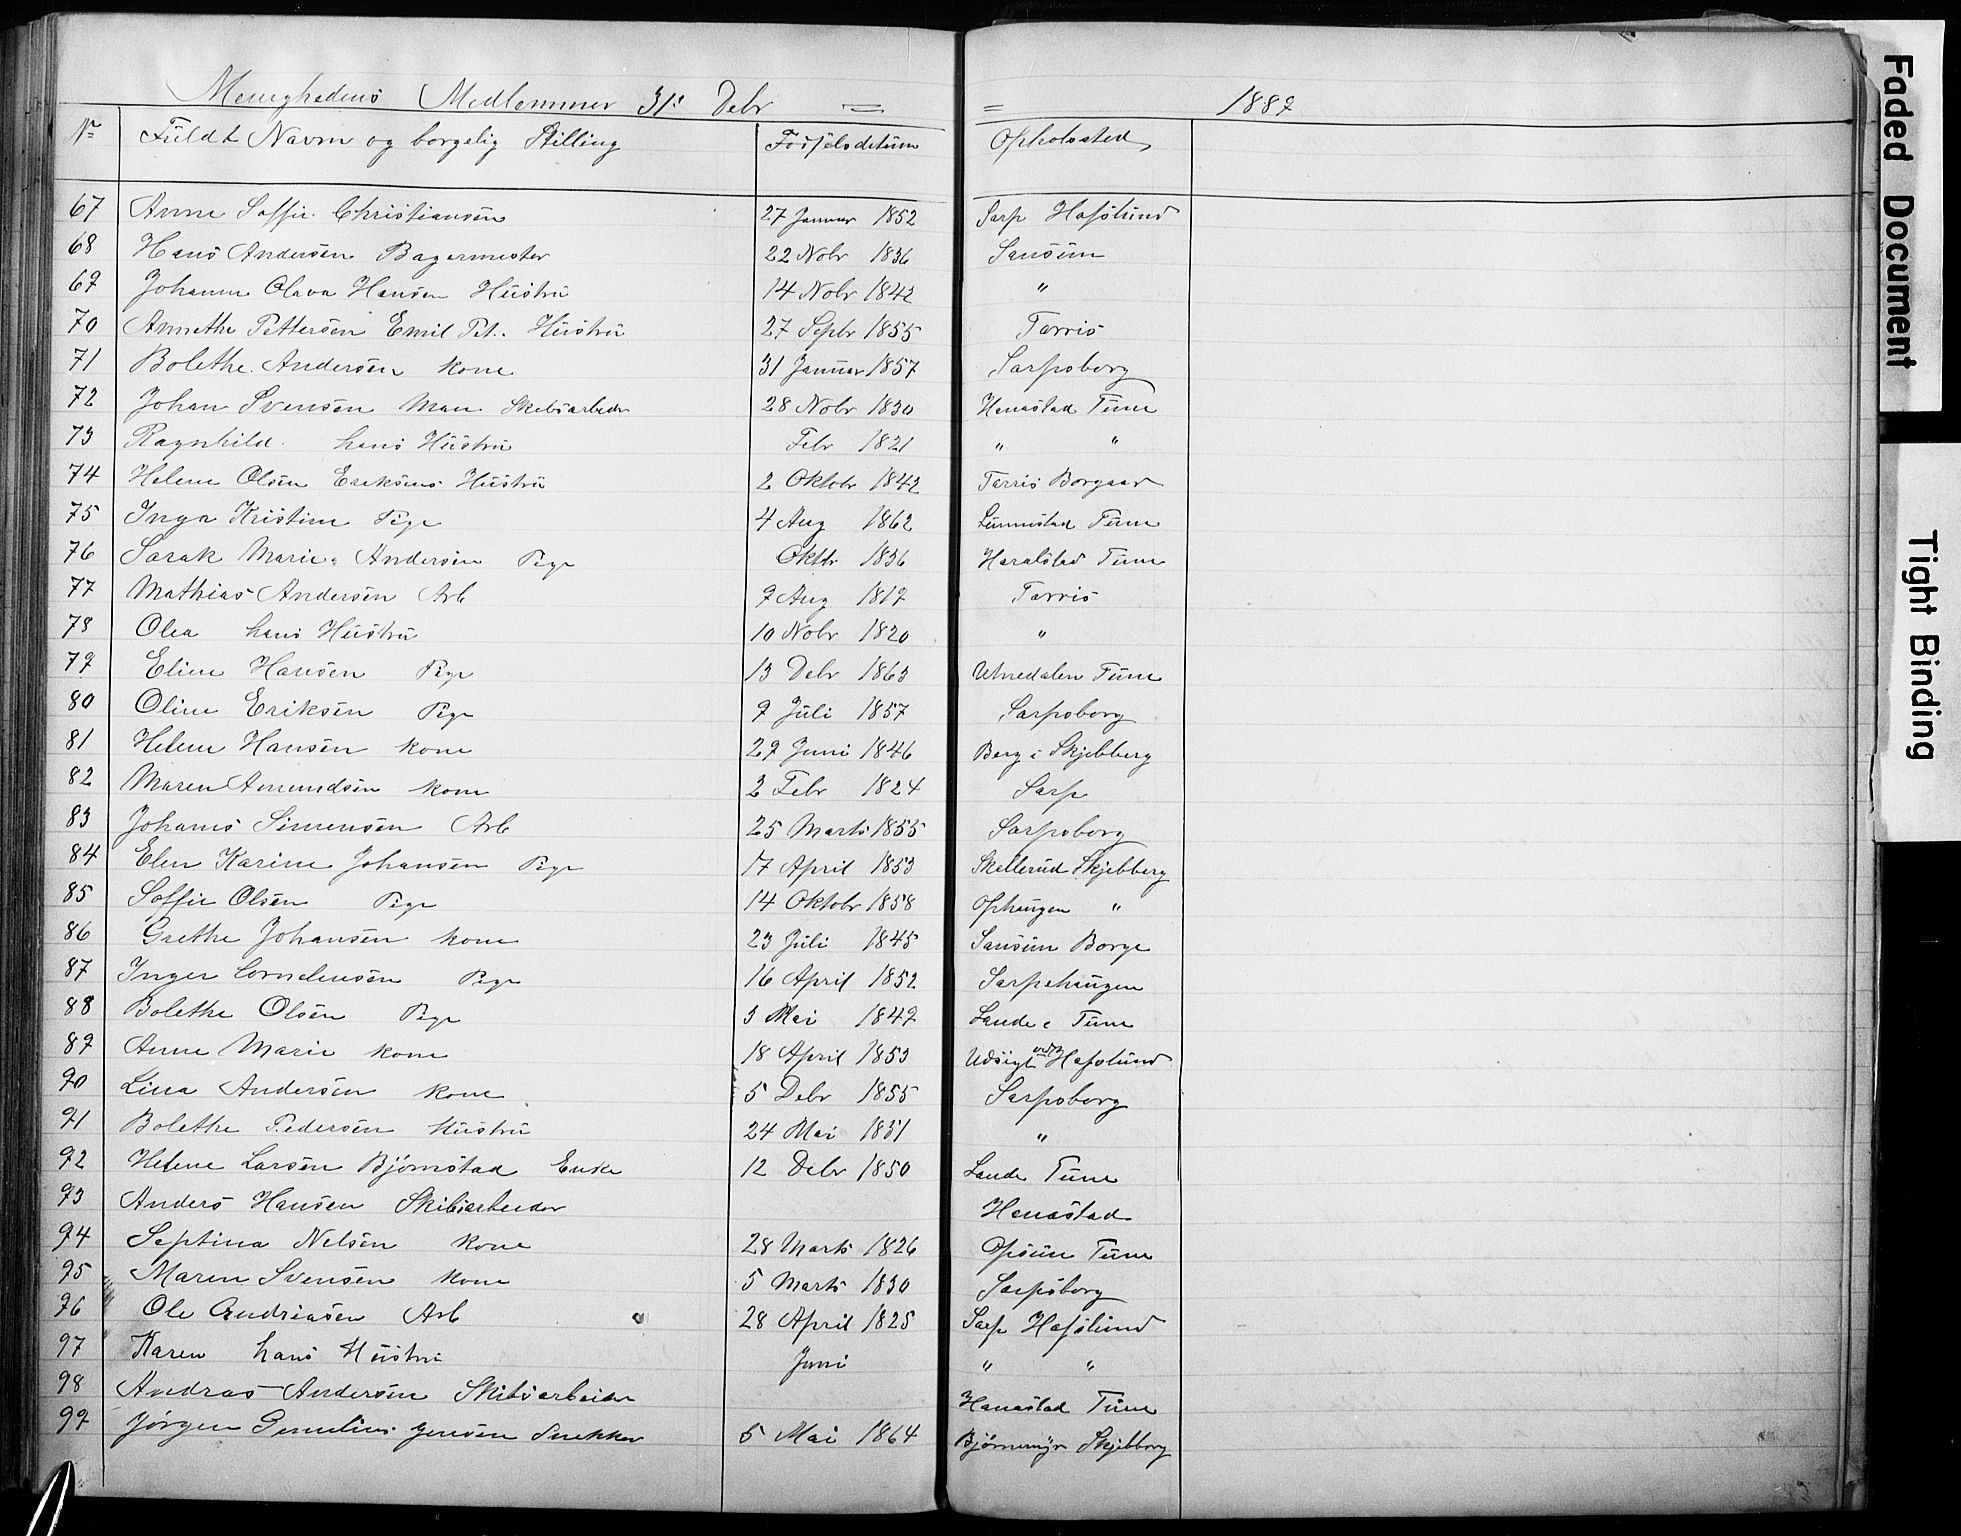 Menighedens Medlemmer 31. Debr = = 1889
No Fuldt Navn og borgelig Stilling Fødselsdatum Opholdssted
67 Anne Soffie Christiansen 27 Januar 1852 Sarp Hafslund
68 Hans Andersen Bagermester 22 Nobr 1836 Sansum
69 Johanne Olava Hansen Hustru 14 Nobr 1842 "
70 Annethe Pettersen Emil Pet. Hustru 27 Sepbr 1855 Tarris
71 Bolethe Andersen Kone 31 Januar 1857 Sarpsborg
72 Johan Svensen Man Skibsarbeder 28 Nobr 1830 Hanastad Tune
73 Ragnhild hans Hustru Febr 1821 " "
74 Helene Olsen Eriksens Hustru 2 Oktobr 1842 Tarris Borgaar
75 Inga Kristine Pige 4 Aug 1862 Tune
76 Sarah Marie Andersen Pige Oktbr 1836 Haralstad Tune
77 Mathias Andersen Arb 9 Aug 1819 Tarris
78 Olea hans Hustru 10 Nobr 1820 "
79 Eline Hansen Pige 13 Debr 1863 Utnedalen Tune
80 Oline Eriksen Pige 9 Juli 1857 Sarpsborg
81 Helene Hansen Kone 29 Juni 1846 Berg i Skjebberg
82 Maren Amundsen Kone 2 Febr 1824 Sarp
83 Johanes Simensen Arb 25 Marts 1855 Sarpsborg
84 Elen Karine Johansen Pige 17 April 1853 Skellerud Skjebberg
85 Soffie Olsen Pige 14 Oktobr 1858 Ophaugen "
86 Grethe Johansen Kone 23 Juli 1845 Sansum Borge
87 Inger Corneliusen Pige 16 April 1852 Sarpehaugen
88 Bolethe Olsen Pige 3 Mai 1849 Lande i Tune
89 Anne Marie Kone 18 April 1853 Udsigt ved Hafslund
90 Lina Andersen Kone 5 Debr 1855 Sarpsborg
91 Bolethe Pedersen Hustru 24 Mai 1831 "
92 Helene Larsen Bjørnstad Enke 12 Debr 1850 Lande Tune
93 Anders Hansen Skibsarbeider Hanastad
94 Septina Nelsen Kone 28 Marts 1826 Opsun Tune
95 Maren Svensen Kone 5 Marts 1830 Sarpsborg
96 Ole Andriasen Arb 28 April 1825 Sarp Hafslund
97 Karen hans Hustru Juni " "
98 Andras Andersen Skibsarbeider Hanastad Tune
99 Jørgen Jensen Snekker 5 Mai 1864 Bjørnemyr Skjebberg
Faded Document
Tight Binding